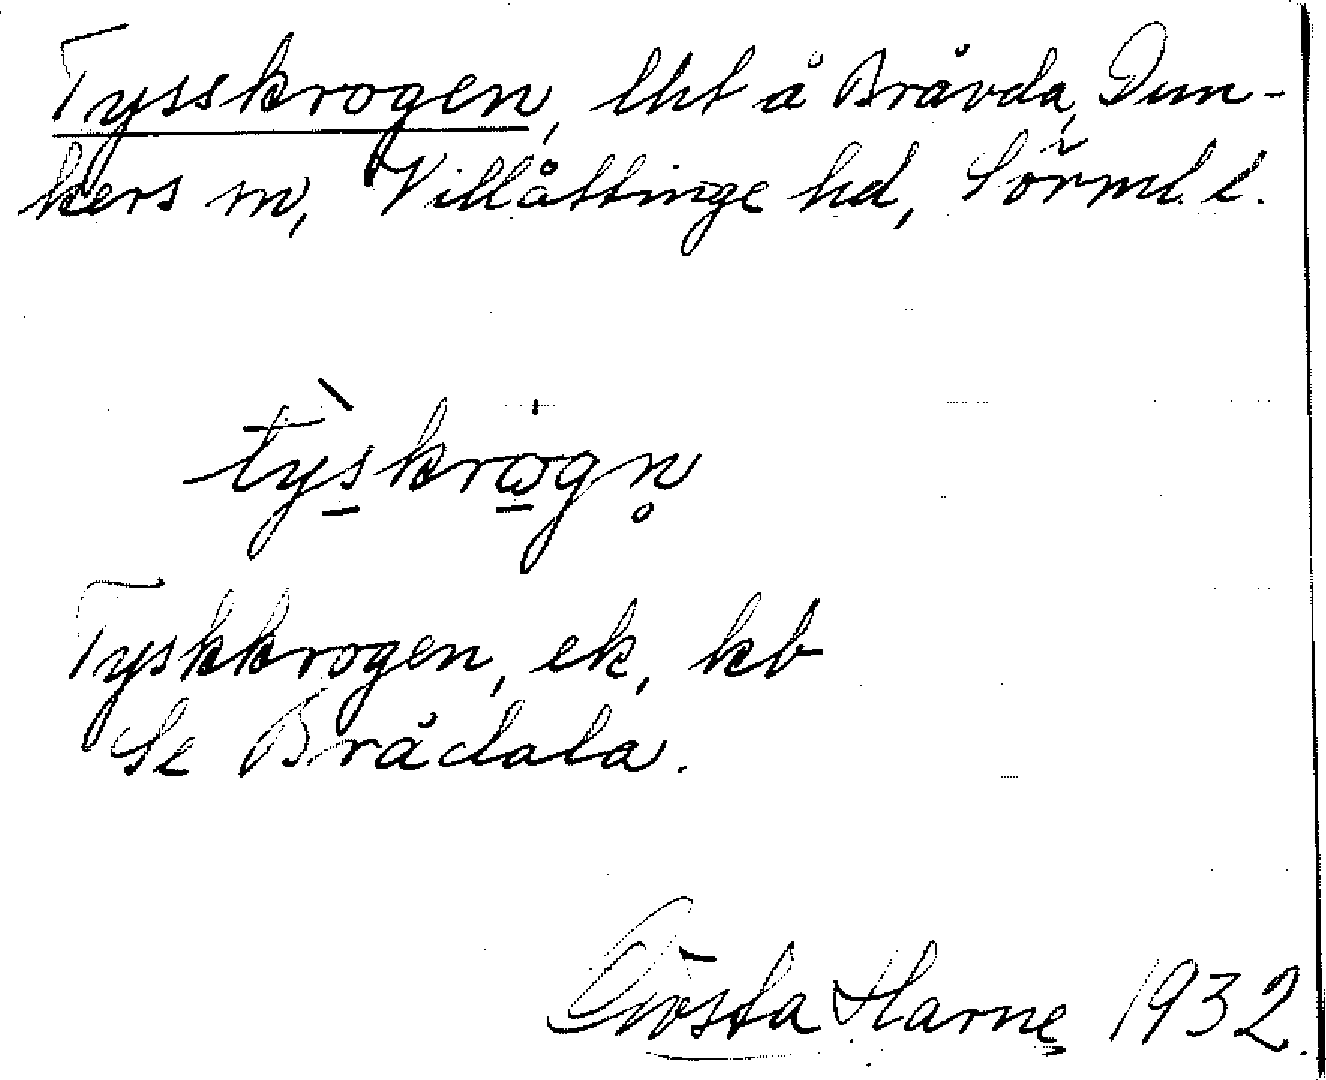 Tysskrogen, lht å Bråvda, Dun-
kers sn, Villåttinge hd, Sörml. l.
ty̍skrogn̥
Tyskkrogen, ek, kb
Se Brådala.
Gösta Harne 1932.